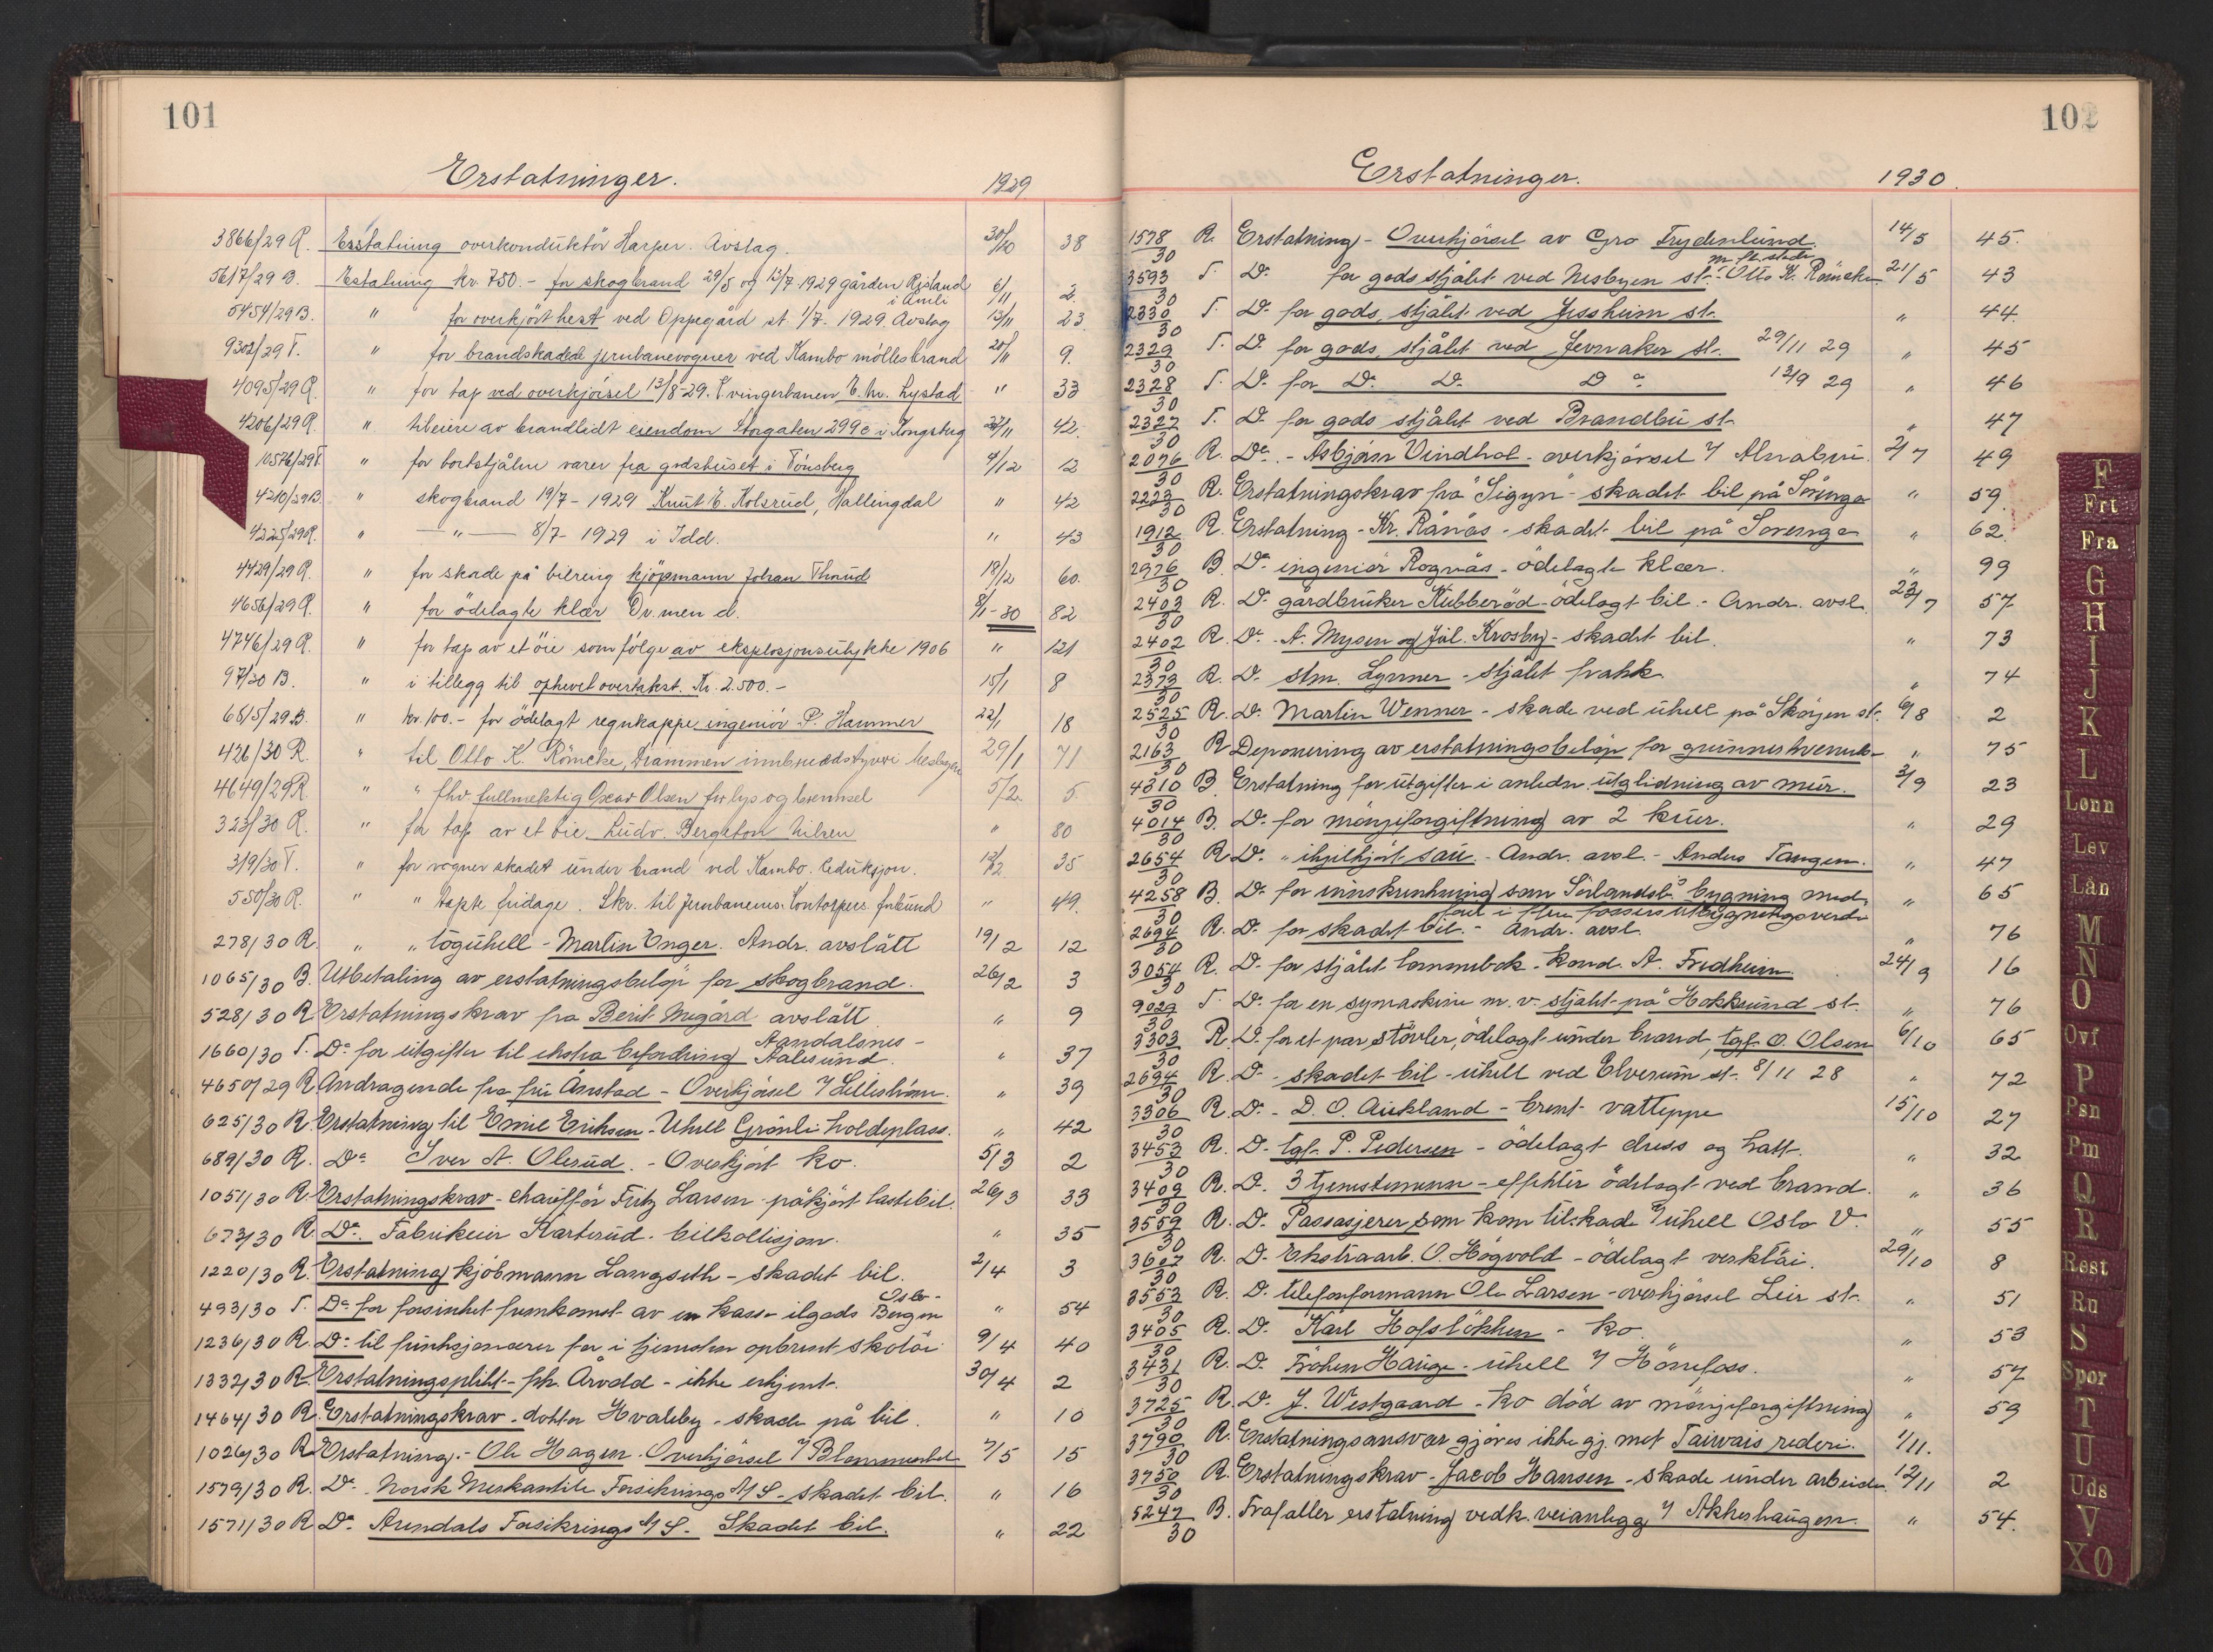 101
Erstatninger. 1929.
3866/29 R. Erstatning overkonduktör Harper. Avslag. 30/10 38
5617/29 B. Erstatning kr. 750.- for skogbrand 29/5 og 13/7 1929 gården Risland i Åmli 6/11 2
5454/29 B. " for overkjört hest ved Oppegård st. 1/7. 1929. Avslag 13/11 23
9302/29 T. " for brandskadede jernbanevogner ved Kambo möllebrand 20/11 9.
4095/29 R. " for tap ved overkjörsel 13/8-29. K.vingerbanen E. Kr. Lystad " 33
4206/29 R. " til eiere av brandlidt eiendom Storgaten 299c i Kongsberg 27/11 42.
10576/29 T. " for bortstjålne varer fra godshuset i Tönsberg 4/12 12
4210/29 B. " skogbrand 19/7 - 1929 Knut E. Kolsrud, Hallingdal " 42
4225/29 R. " — " — 8/7 - 1929 i Idd. " 43
4429/29 R. " for skade på bilreing kjöpmann Johan Thrud 18/12 60.
4656/29 R. " for ödelagte klær Dr.men d. 8/1-30 82
4746/29 R. " for tap av et öie som fölge av eksplosjonsulykke 1906 " 121
97/30 B. " i tillegg til ophevet overtakst. Kr. 2.500.- 15/1 8
6815/29 B. " kr. 100.- for ödelagt regnkappe ingeniör P. Hammer 22/1 18
426/30 R. " til Otto K. Römcke, Drammen innbruddstyveri Nesbyen 29/1 71
4649/29 R " " fhv. fullmektig Oscar Olsen for lys og brensel 5/2. 5
323/30 R. " for tap av et öie Ludv. Bergeton Nilsen " 80
319/30 T. " for vogner skadet under brand ved Kambo. Reduksjon. 12/2 35
550/30 R. " " tapte fridage. Skr. til Jernbanens Kontorpers. forbund " 49.
278/30 R. " " toguhell - Martin Enger. Andr. avslått 19/2 12
1065/30 B. Utbetaling av erstatningsbelöp for skogbrand. 26/2 3
528/30 R Erstatningskrav fra Berit Megård avslått " 9
1660/30 T. Do for utgifter til ekstra befordring Åndalsnes - Aalesund. " 37
4650/29 R Andragende fra fru Ånstad - Overkjörsel v/ Lilleström. " 39
625/30 R. Erstatning til Emil Eriksen - Uhell Grönli holdeplass. " 42
689/30 R. Do Iver A. Olsrud. - Overkjört ko. 5/3 2
1051/30 R. Erstatningskrav - chaufför Fritz Larsen - påkjört lastebil. 26/3 33
673/30 R. Do. Fabrikeier Karterud - bilkollisjon. " 35
1220/30 R. Erstatning kjöbmann Langseth - skadet bil. 2/4 3
493/30 T. Do for forsinket fremkomst av en kasse ilgods Oslo - Bergen " 54
1236/30 R. Do til funksjonærer for i tjenesten opbrent skotöi 9/4 40
1332/30 R. Erstatningsplikt - fhr. Årodd - ikke erkjent. 30/4 2
1464/30 R. Erstatningskrav - doktor Hvalsby - skade på bil. " 10
1026/30 R Erstatning. - Ole Hagen. Overkjörsel v/ Blommenholm 7/5 15
1579/30 R. Do. Norsk Merkantile Forsikrings A/S - skadet bil. " 16
1571/30 R Do. Arendals Forsikrings A/S. Skadet bil. " 22
102
Erstatninger. 1930.
1578/30 R. Erstatning - Overkjörsel av Gro Frydenlund. 14/5 45.
3593/30 T. Do for gods stjålet ved Nesbyen st. Otto K. Römcke m. fl. steder 21/5 43
2330/30 T. Do for gods, stjålet ved Jessheim st. " 44.
2329/30 T. Do for gods, stjålet ved Jevnaker st. 29/11 29 " 45
2328/30 T. Do for Do. Do. Do 12/9 29 " 46
2327/30 T. Do for gods stjålet ved Brandbu st. " 47
2076/30 R. Do. - Asbjörn Vindhol - overkjörsel v/ Alnabru. 2/7 49
2223/30 R. Erstatningskrav fra "Sigyn" - skadet bil på Sörenga " 59.
1912/30 R. Erstatning - Kr. Rånås - skadet bil på Sorenga " 62.
2976/30 B. Do ingeniör Rognås - ödelagte klær. " 99
2403/30 R. Do gårdbruker Kubberöd - ödelagt bil - Andr. avsl. 23/7 57
2402/30 R. Do. A. Mysen og Jul. Krosby - skadet bil. " 73
2373/30 R. Do. stm. Lynner - stjålet frakk " 74
2525/30 R. Do. Martin Wenner - skade ved uhell på Sköyen st. 6/8 2
2163/30 R Deponering av erstatningsbelöp for grunnerhvervelse " 75
4310/30 B. Erstatning for utgifter i anledn. utglidning av mur. 3/9 23
4014/30 B. Do. for mönjeforgiftning av 2 kuer. " 29
2654/30 R Do. " ihjelkjört sau. - Andr. avsl. - Anders Tangen. " 47
4258/30 B. Do. for innskrenkning som Sörlandsb. bygning med- " 65
fört i flere fossers utbygningsverdi
2694/30 R. Do. for skadet bil. - Andr. avsl. " 76
3054/30 R. Do. for stjålet lommebok - Kond. A. Fredheim. 24/9 16
9029/30 T. Do. for en symaskine m. v. stjålet på Hokksund st. " 76
3303/30 R. Do. for et par stövler, ödelagt under brand, tgf. O. Olsen 6/10 65
2694/30 R. Do. - skadet bil - uhell ved Elverum st. 8/11 28 " 72
3306/30 R. Do. - D. O. Aukland - brent vatteppe 15/10 27
3453/30 R. Do. - tgf. P. Pedersen - ödelagt dress og hatt. " 32
3409/30 R. Do. 3 tjenestemenn - effekter ödelagt ved brand. " 36
3559/30 R. Do. Passasjerer som kom til skade v/ uhell Oslo V. " 55
3607/30 R. Do. Ekstraarb. O. Högvold - ödelagt verktöi. 29/10 8
3553/30 R. Do. telefonformann Ole Larsen - overkjörsel Leir st. " 51
3405/30 R. Do. Karl Hofslökken - ko. " 53
3431/30 R. Do. Fröken Hauge - uhell v/ Hönefoss. " 57
3725/30 R. Do. J. Westgaard - ko död av mönjeforgiftning " 59
3790/30 R. Erstatningsansvar gjöres ikke gj. mot Tairvais rederi. 1/11.
3750/30 R. Erstatningskrav - Jacob Hansen - skade under arbeide 12/11 2
5247/30 B. Frafaller erstatning vedk. veianlegg v/ Akkerhaugen. " 54.
F
Frt
Fra
G
H
I
J
K
L
Lønn
Lev
Lån
M
N
O
Ovf
P
Psn
Pm
Q
R
Rest
Ru
S
Spor
T
U
Uds
V
XØ